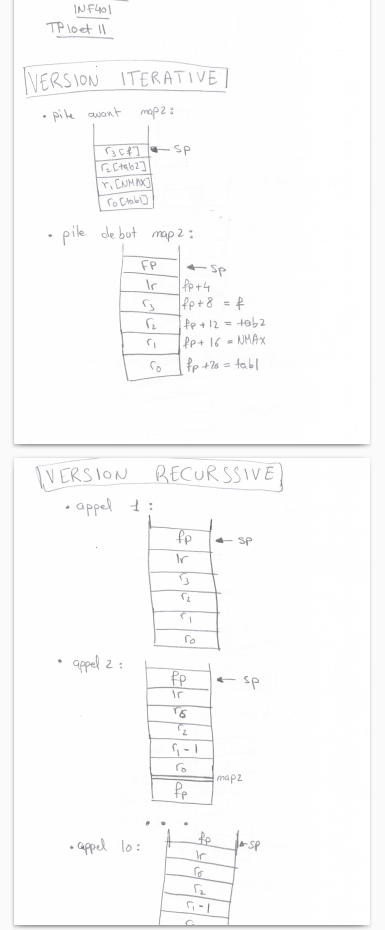 INF401
TP10 et 11
VERSION ITERATIVE
• pile avant map2:
r3[f] ← sp
r2[tab2]
r1[NMAX]
r0[tab1]
• pile debut map2:
FP ← sp
lr fp+4
r3 fp+8 = f
r2 fp+12 = tab2
r1 fp+16 = NMAX
r0 fp+20 = tab1
VERSION RECURSSIVE
• appel 1:
fp ← sp
lr
r3
r2
r1
r0
• appel 2:
fp ← sp
lr
r2
r1-1
r0
map2
fp
• • •
• appel 10:
fp ← sp
lr
r2
r1-1